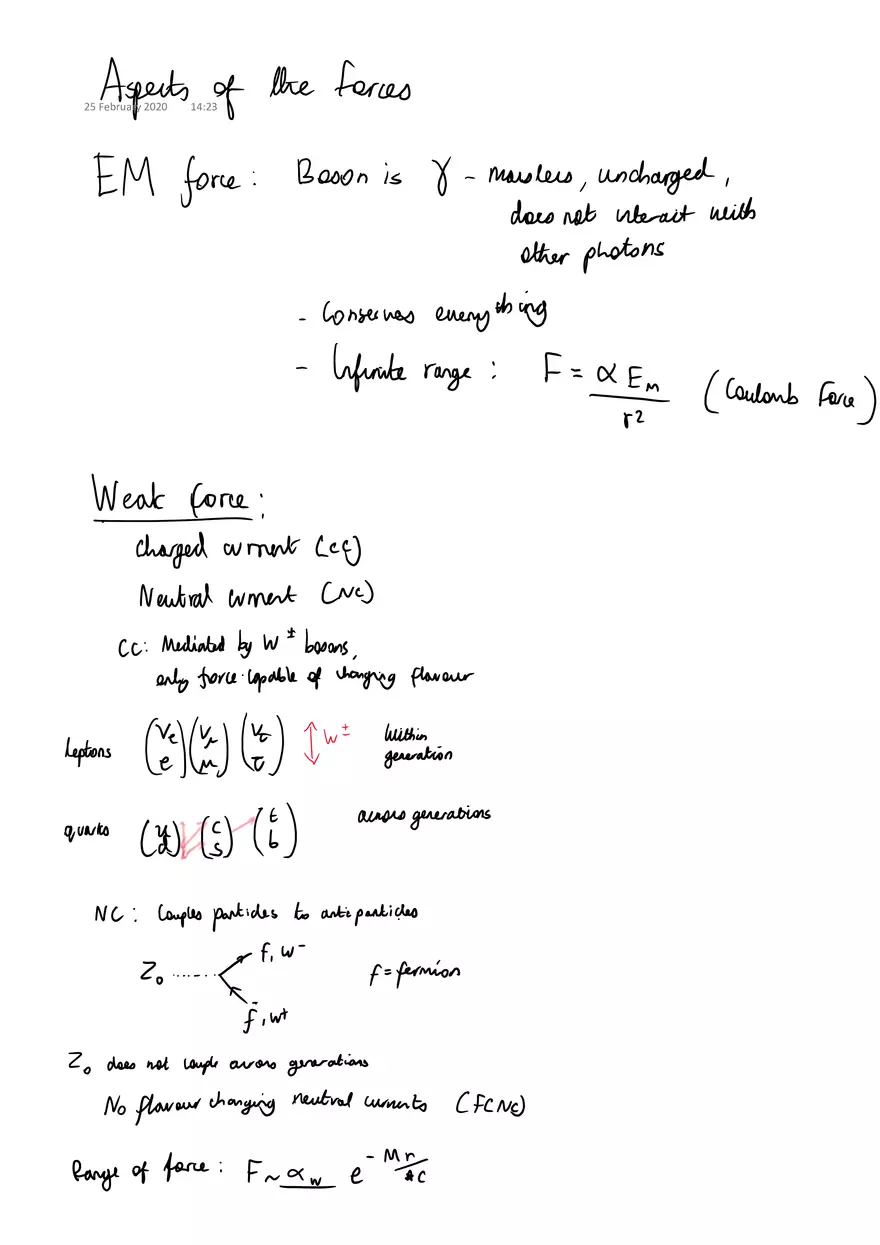 Aspects of the forces
25 February 2020 14:23
EM force: Boson is γ - massless, uncharged,
does not interact with
other photons
- Conserves everything
- Infinite range: F = α E_m / r² (Coulomb Force)
Weak force:
Charged current (CC)
Neutral current (NC)
CC: Mediated by W± bosons,
only force capable of changing flavour
Leptons (νe e) (νμ μ) (ντ τ) ↕ W± Within generation
quarks (u d) (c s) (t b) across generations
NC: Couples particles to antiparticles
f, W-
Z₀ f = fermion
f̄, W+
Z₀ does not couple across generations
No flavour changing neutral currents (FCNC)
Range of force: F ~ α_w e^-Mr/ħc